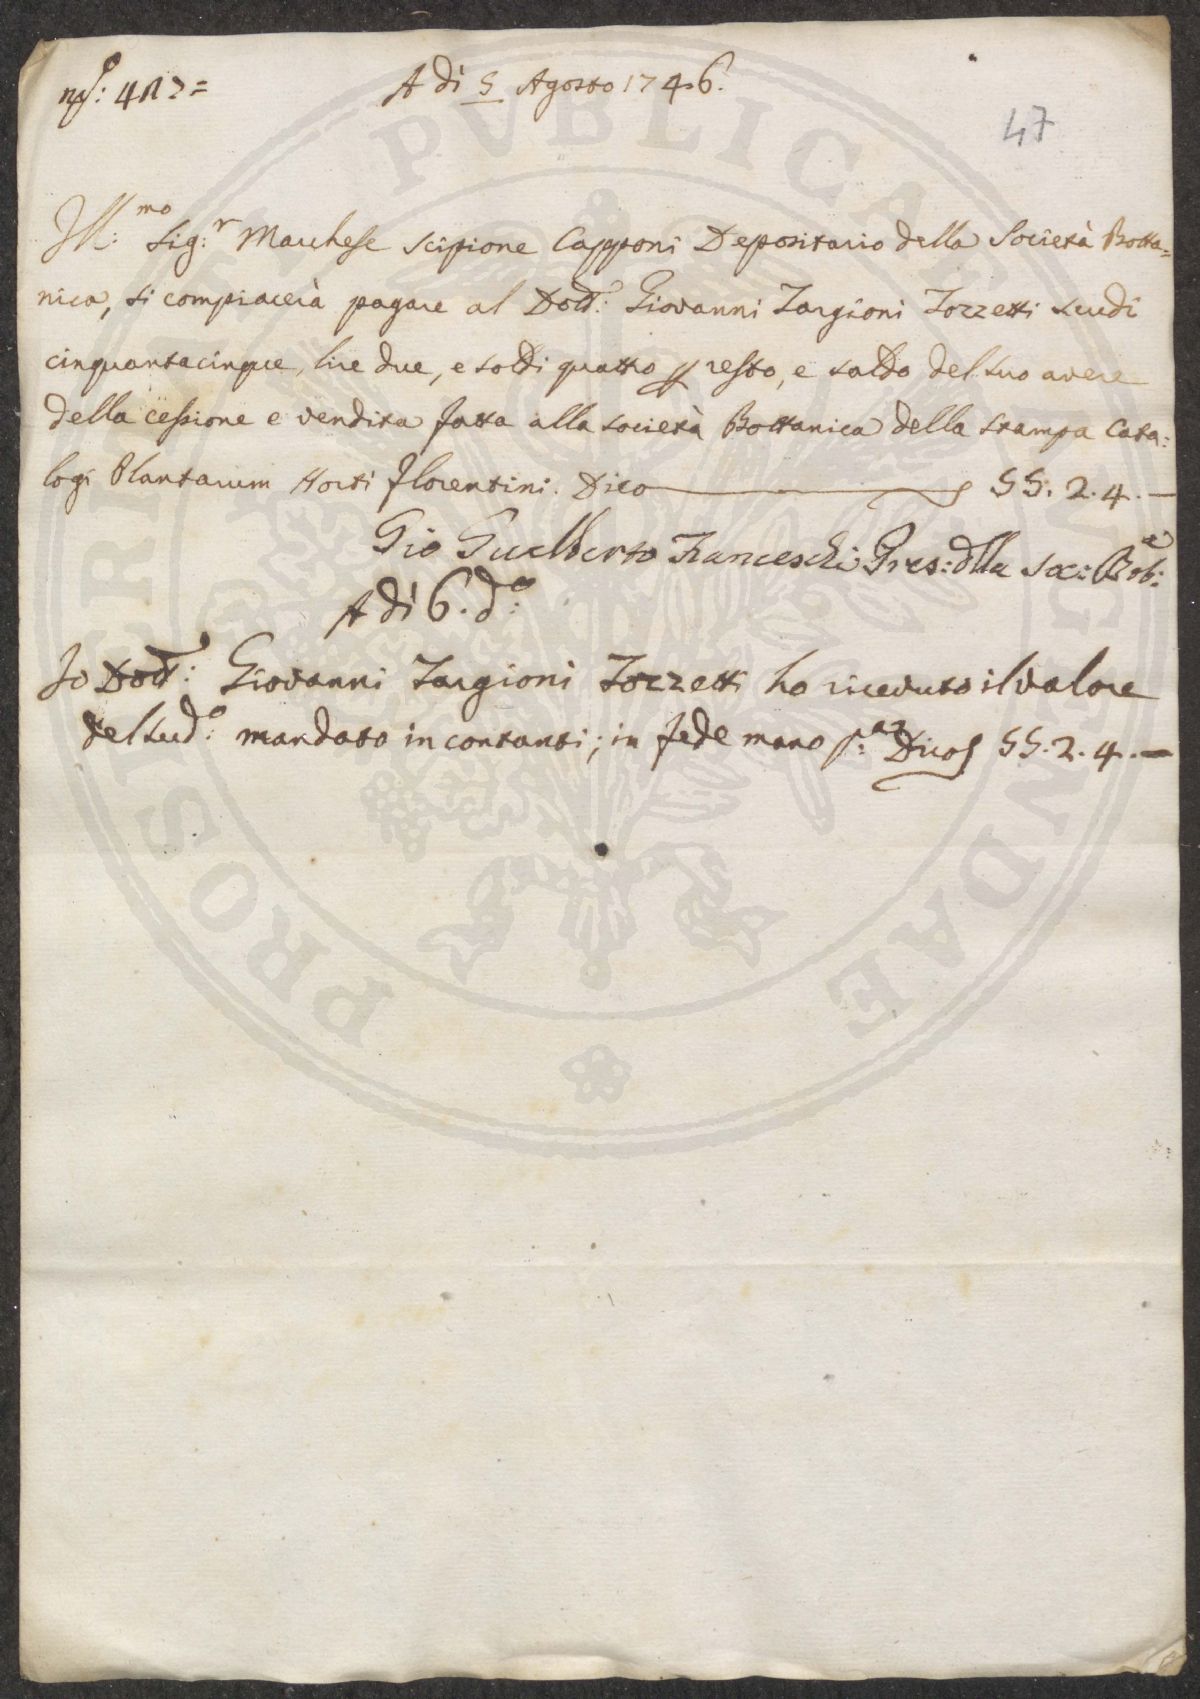 A dì 5 Agosto 1746.
47
Ill:mo Sig:r Marchese Scipione Capponi Depositario della Società Botta=
nica, si compiacerà pagare al Dott: Giovanni Targioni Tozzetti scudi
cinquantacinque, lire due, e soldi quattro p resto, e saldo del suo avere
della cessione e vendita fatta alla società Bottanica della stampa Cata:
logi Plantarum Horti Florentini. Dico 55. 2. 4. —
Gio Gualberto Franceschi Pres:e della Soc: Bot:
A dì 6. d:o
Io Dott: Giovanni Targioni Tozzetti ho ricevuto il valore
del sud:o mandato in contanti; in fede mano p:a Dico 55. 2. 4. —
PROSPERITATI PVBLICAE AVGENDAE